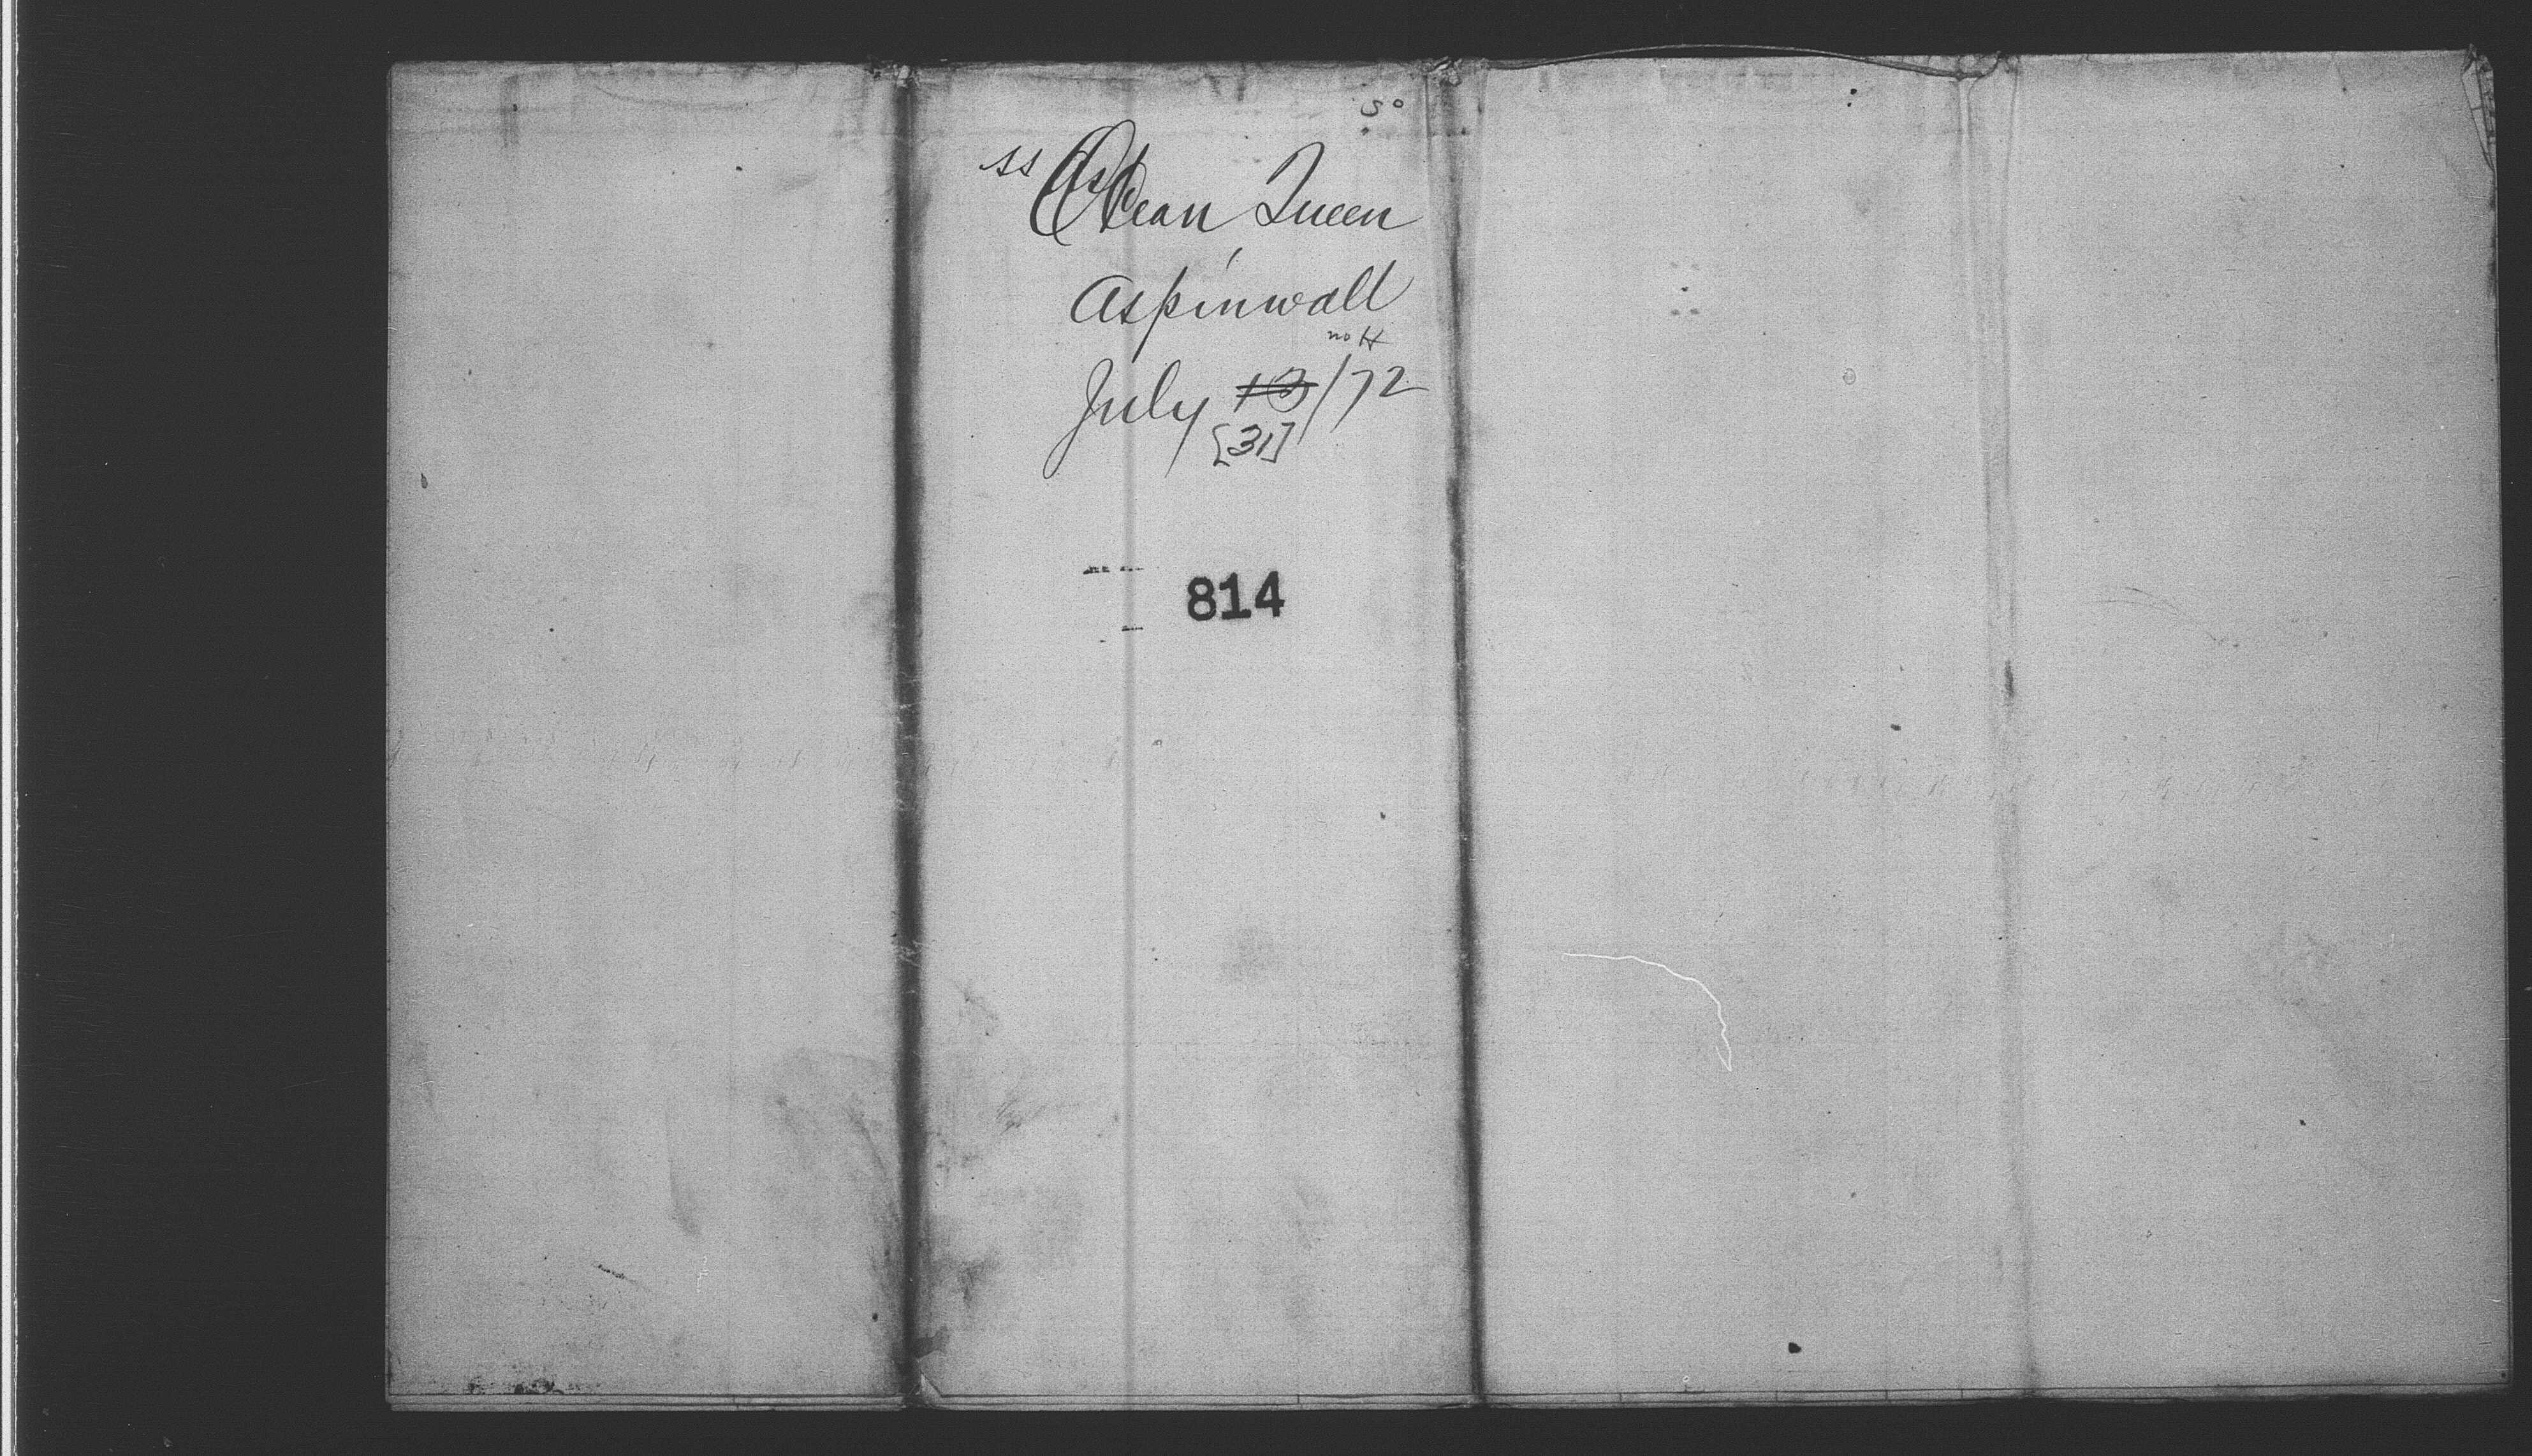 SS Ocean Queen
Aspinwall
no H
July 13/72
[31]
814